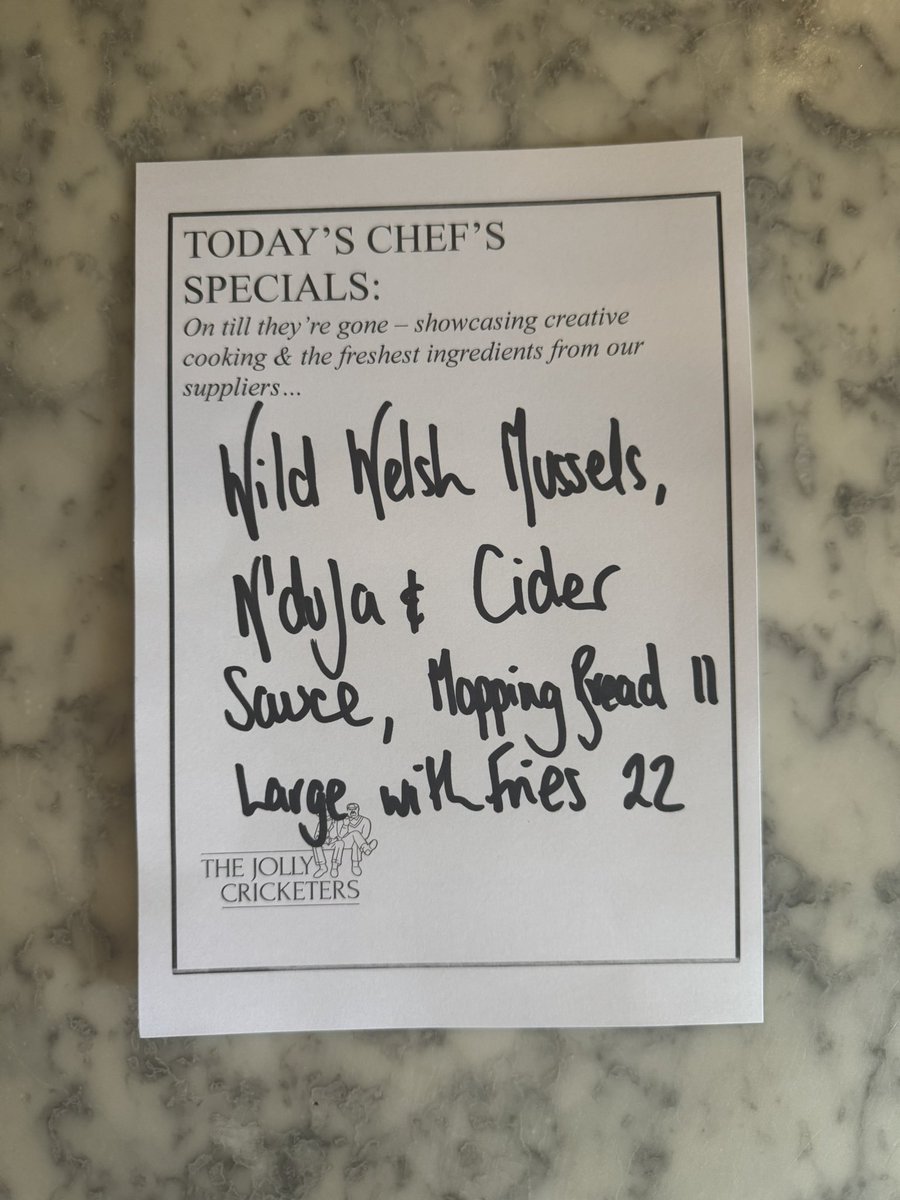 TODAY'S CHEF'S
SPECIALS:
On till they're gone – showcasing creative
cooking & the freshest ingredients from our
suppliers…
Wild Welsh Mussels,
N'duJa & Cider
Sauce, Mopping Bread 11
Large with Fries 22
THE JOLLY
CRICKETERS